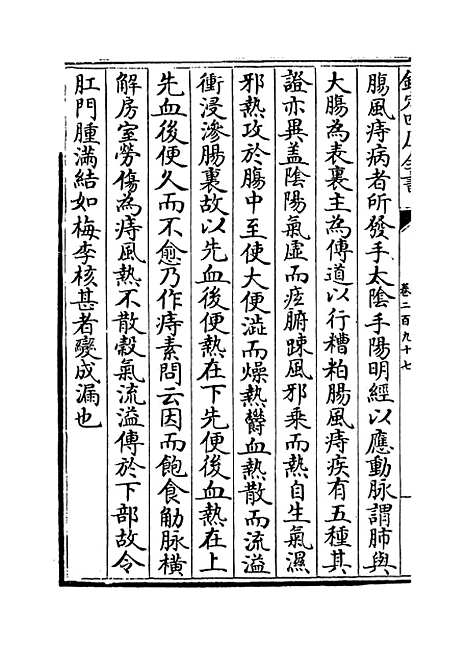 欽定四庫全書
卷二百九十七
腸風痔病者所發手太陰手陽明經以應動脉謂肺與
大腸為表裏主為傳道以行糟粕腸風痔疾有五種其
證亦異盖陰陽氣虛而痃腑踈風邪乘而熱自生氣濕
邪熱攻於腸中至使大便澁而燥熱鬱血熱散而流溢
衝浸滲腸裏故以先血後便熱在下先便後血熱在上
先血後便久而不愈乃作痔素問云因而飽食觔脉横
解房室勞傷為痔風熱不散穀氣流溢傳於下部故令
肛門腫滿結如梅李核甚者變成漏也